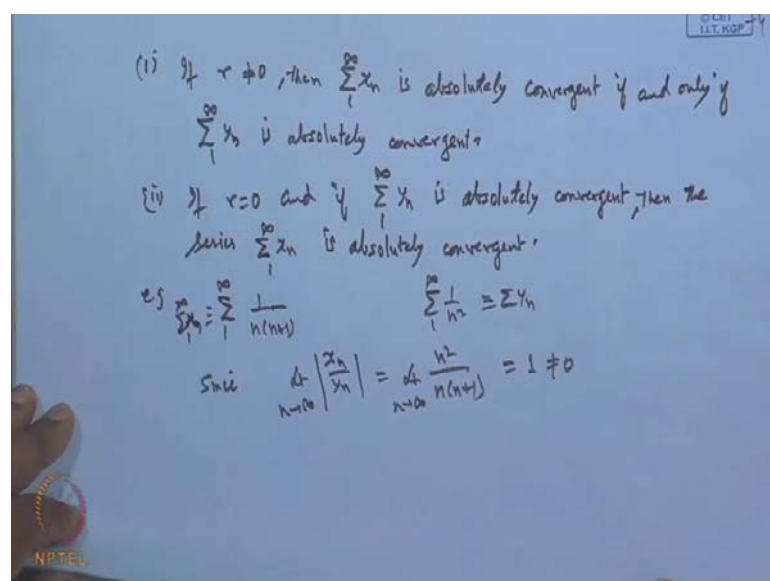 © CET
I.I.T. KGP
(i) If r ≠ 0, then ∑_1^∞ x_n is absolutely convergent if and only if
∑_1^∞ y_n is absolutely convergent.
(ii) If r=0 and if ∑_1^∞ y_n is absolutely convergent, then the
series ∑_1^∞ x_n is absolutely convergent.
e.g ∑_1^∞ x_n ≡ ∑_1^∞ 1/n(n+1) ∑_1^∞ 1/n² ≡ ∑ y_n
Since lt_{n→∞} |x_n/y_n| = lt_{n→∞} n²/n(n+1) = 1 ≠ 0
NPTEL